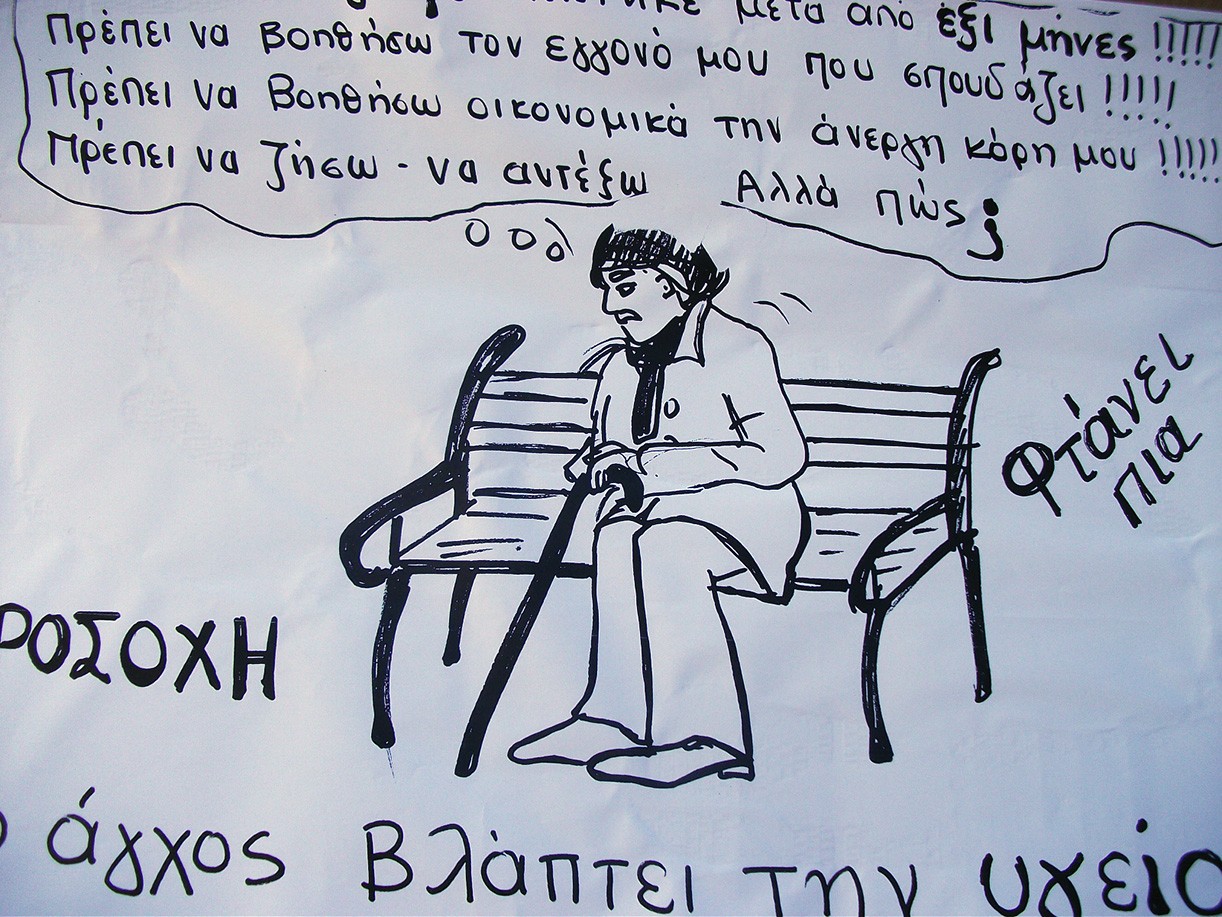 μετά από έξι μήνες !!!!!
Πρέπει να βοηθήσω τον εγγονό μου που σπουδάζει !!!!!
Πρέπει να βοηθήσω οικονομικά την άνεργη κόρη μου !!!!!
Πρέπει να ζήσω - να αντέξω Αλλά πώς ;
Φτάνει
πια
ΡΟΣΟΧΗ
άγχος βλάπτει την υγεία